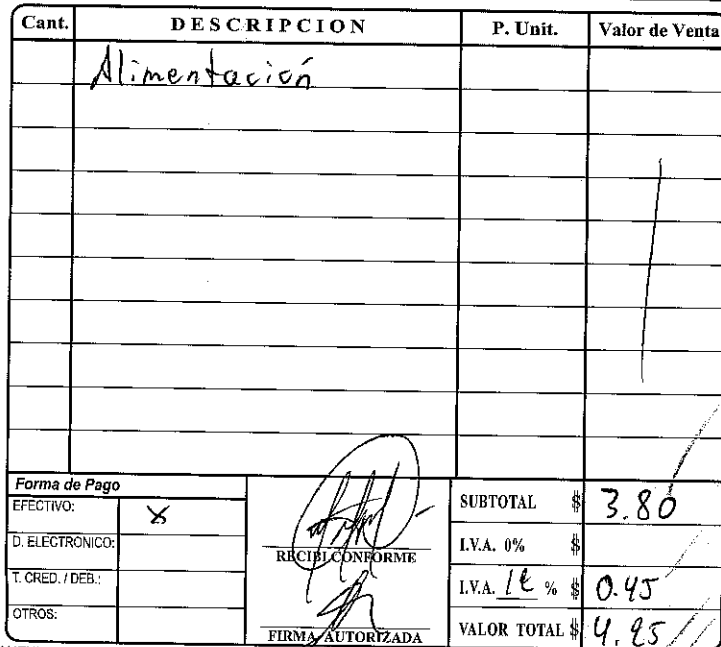 Cant. DESCRIPCION P. Unit. Valor de Venta
Alimentación
Forma de Pago
EFECTIVO: X
D. ELECTRONICO:
T. CRED. / DEB.:
OTROS:
RECIBI CONFORME
FIRMA AUTORIZADA
SUBTOTAL $ 3.80
I.V.A. 0% $
I.V.A. 12 % $ 0.45
VALOR TOTAL $ 4.25